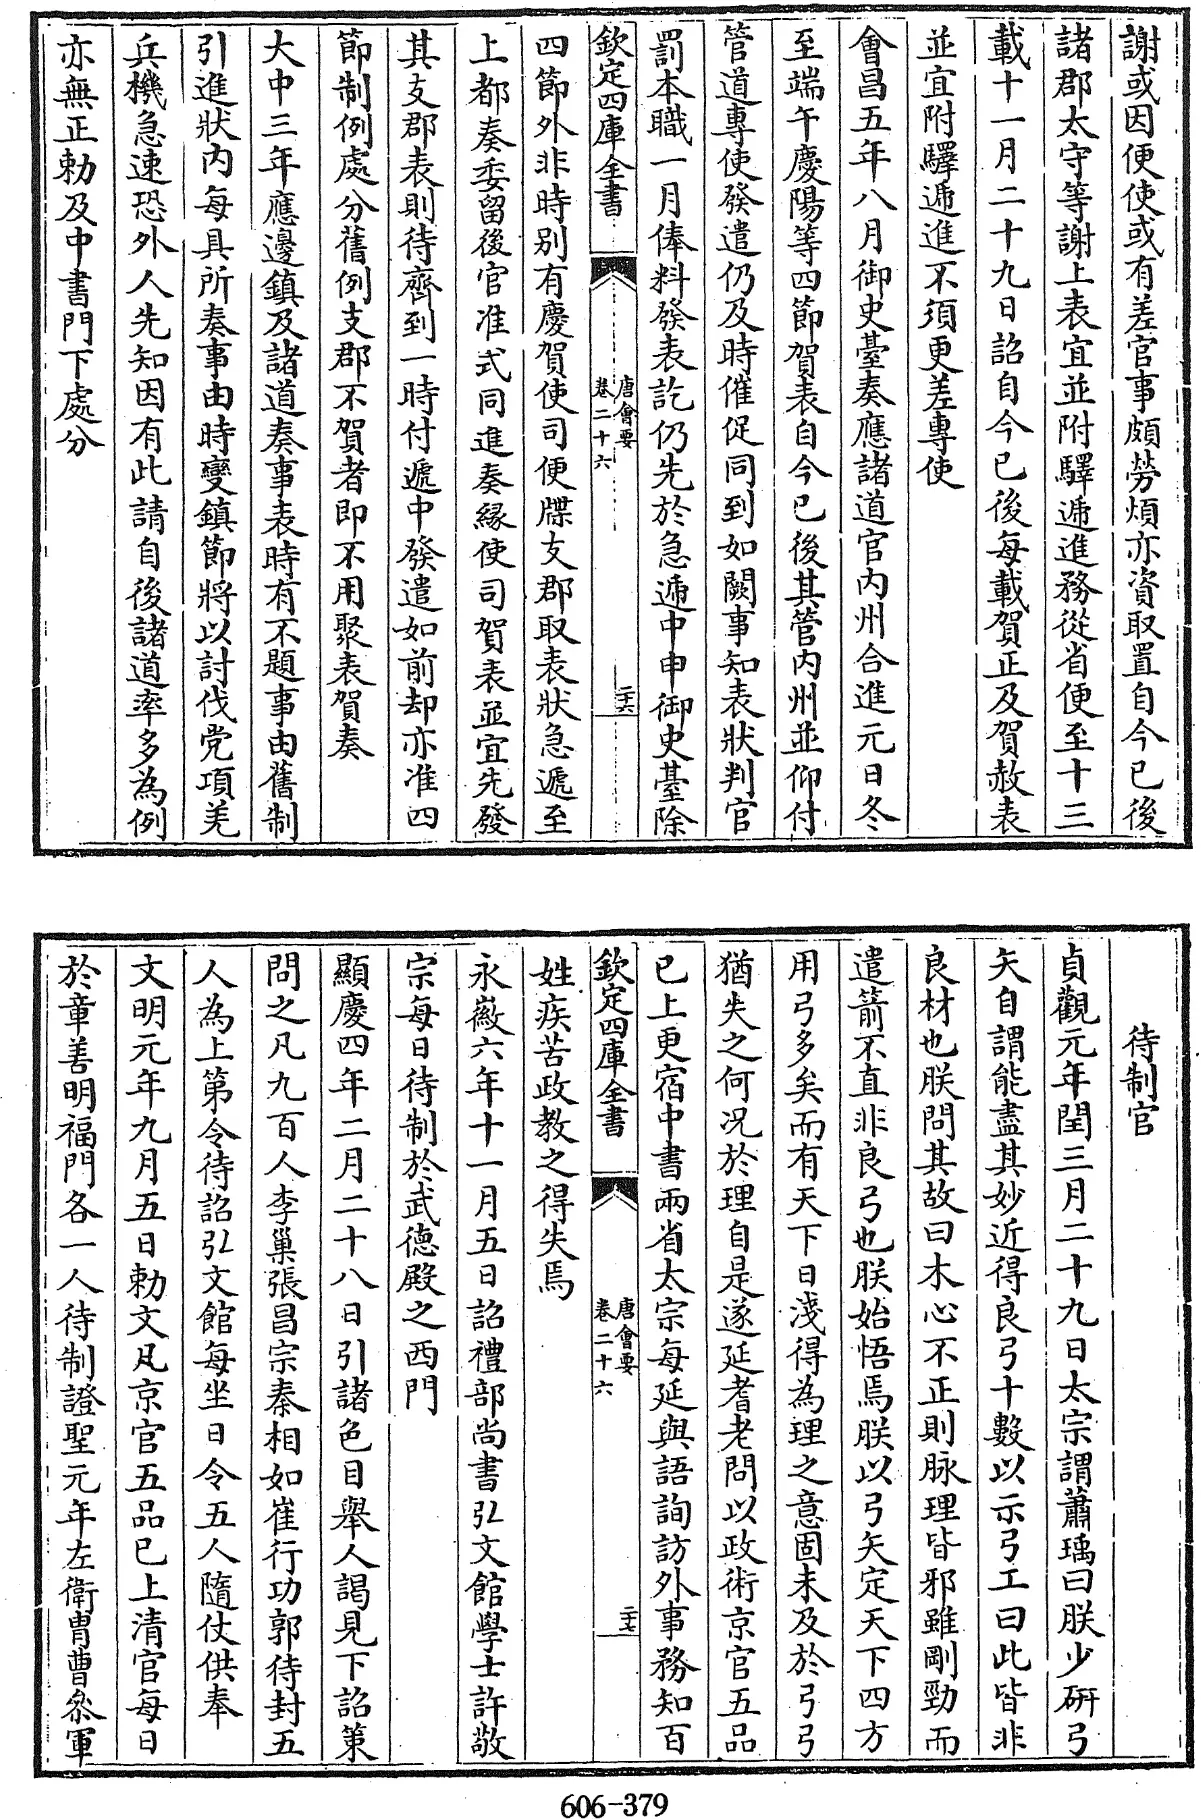 謝或因便使或有差官事頗勞煩亦資取置自今已後
諸郡太守等謝上表宜並附驛遞進務從省便至十三
載十一月二十九日詔自今已後每載賀正及賀赦表
並宜附驛遞進不須更差專使
會昌五年八月御史臺奏應諸道官内州合進元日冬
至端午慶陽等四節賀表自今已後其管内州並仰付
管道專使發遣仍及時催促同到如闕事知表狀判官
罰本職一月俸料發表訖仍先於急遞中申御史臺除
欽定四庫全書
唐會要
卷二十六
二十六
四節外非時别有慶賀使司便牒支郡取表狀急遞至
上都奏委留後官准式同進奏縁使司賀表並宜先發
其支郡表則待齊到一時付遞中發遣如前却亦准四
節制例處分舊例支郡不賀者即不用聚表賀奏
大中三年應邊鎮及諸道奏事表時有不題事由舊制
引進狀内每具所奏事由時變鎮節將以討伐党項羌
兵機急速恐外人先知因有此請自後諸道率多為例
亦無正勅及中書門下處分
待制官
貞觀元年閏三月二十九日太宗謂蕭瑀曰朕少硏弓
矢自謂能盡其妙近得良弓十數以示弓工曰此皆非
良材也朕問其故曰木心不正則脉理皆邪雖剛勁而
遣箭不直非良弓也朕始悟焉朕以弓矢定天下四方
用弓多矣而有天下日淺得為理之意固未及於弓弓
猶失之何况於理自是遂延耆老問以政術京官五品
已上更宿中書兩省太宗每延與語詢訪外事務知百
欽定四庫全書
唐會要
卷二十六
二十七
姓疾苦政教之得失焉
永徽六年十一月五日詔禮部尚書弘文館學士許敬
宗每日待制於武德殿之西門
顯慶四年二月二十八日引諸色目舉人謁見下詔策
問之凡九百人李巢張昌宗秦相如崔行功郭待封五
人為上第令待詔弘文館每坐日令五人隨仗供奉
文明元年九月五日勅文凡京官五品已上清官每日
於章善明福門各一人待制證聖元年左衛胄曹叅軍
606-379